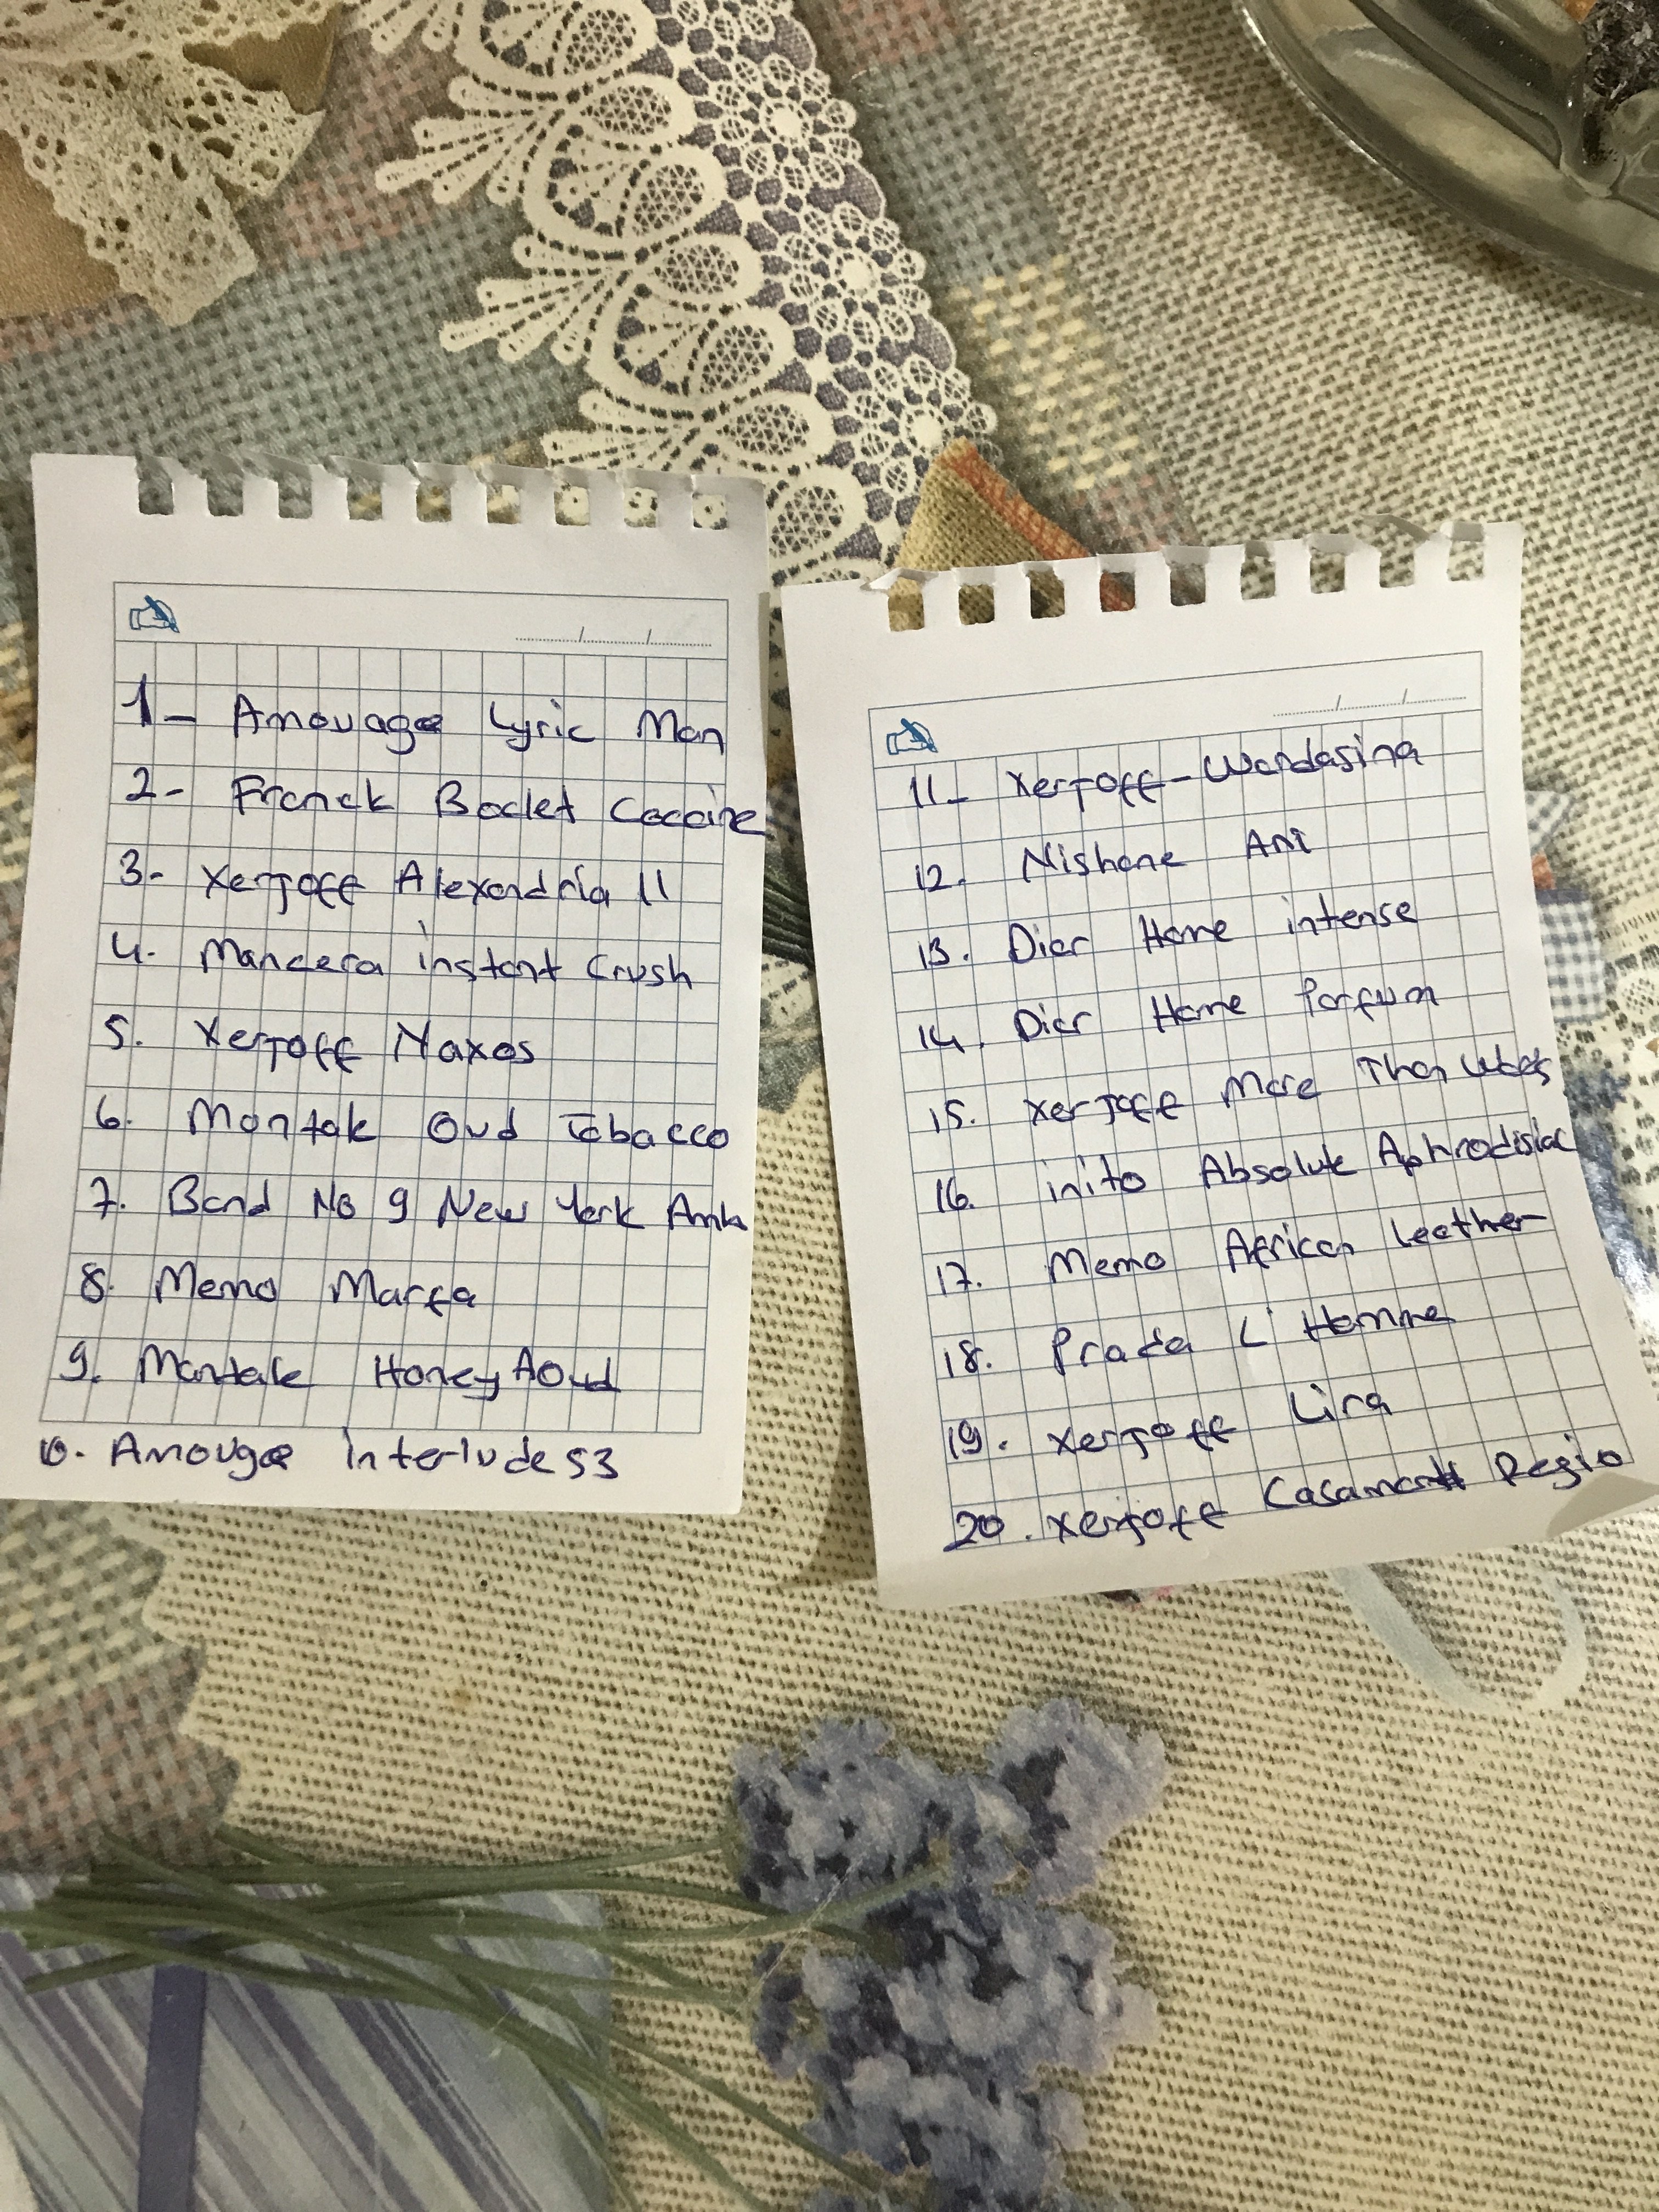 1- Amouage Lyric Man
2- Franck Boclet Cocaine
3- Xerjoff Alexandria II
4. Mancera instant Crush
5. Xerjoff Naxos
6. Montale Oud Tobacco
7. Bond No 9 New York Amb
8. Memo Marfa
9. Montale Honey Aoud
10. Amouge interlude 53
11- Xerjoff-Wardasina
12. Nishane Ani
13. Dior Home intense
14. Dior Home Parfum
15. Xerjoff More Than Words
16. inito Absolute Aphrodisiac
17. Memo African Leather
18. Prada L'Homme
19. Xerjoff Lira
20. Xerjoff Casamoratti Regio